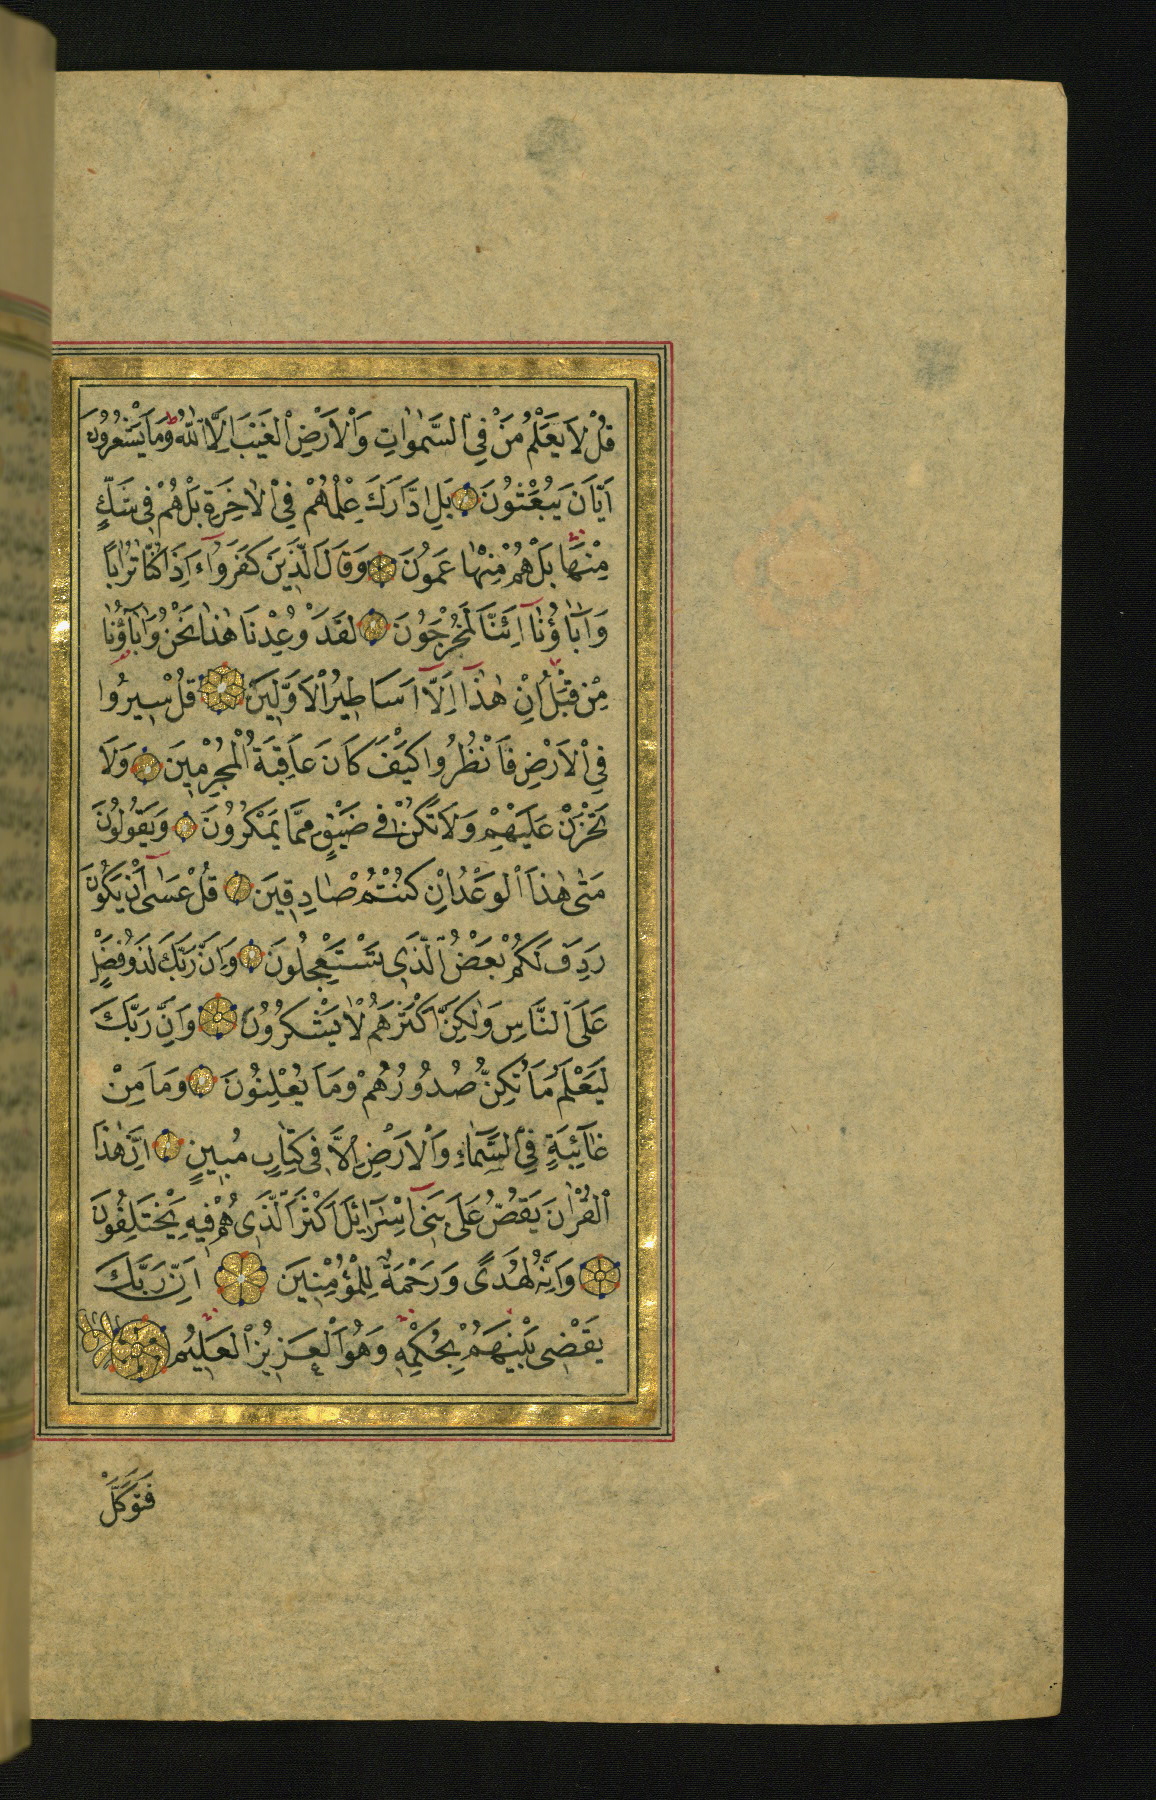 قُلْ لَا يَعْلَمُ مَنْ فِي السَّمٰوَاتِ وَالْاَرْضِ الْغَيْبَ اِلَّا اللّٰهُ ط وَمَا يَشْعُرُونَ
اَيَّانَ يُبْعَثُونَ بَلِ ادَّارَكَ عِلْمُهُمْ فِي الْاٰخِرَةِ بَلْ هُمْ فِي شَكٍّ
مِنْهَا بَلْ هُمْ مِنْهَا عَمُونَ وَقَالَ الَّذِينَ كَفَرُوا ءَاِذَا كُنَّا تُرَابًا
وَاٰبَاؤُنَا اَئِنَّا لَمُخْرَجُونَ لَقَدْ وُعِدْنَا هٰذَا نَحْنُ وَاٰبَاؤُنَا
مِنْ قَبْلُ اِنْ هٰذَا اِلَّا اَسَاطِيرُ الْاَوَّلِينَ قُلْ سِيرُوا
فِي الْاَرْضِ فَانْظُرُوا كَيْفَ كَانَ عَاقِبَةُ الْمُجْرِمِينَ وَلَا
تَحْزَنْ عَلَيْهِمْ وَلَا تَكُنْ فِي ضَيْقٍ مِمَّا يَمْكُرُونَ وَيَقُولُونَ
مَتٰى هٰذَا الْوَعْدُ اِنْ كُنْتُمْ صَادِقِينَ قُلْ عَسٰى اَنْ يَكُونَ
رَدِفَ لَكُمْ بَعْضُ الَّذِي تَسْتَعْجِلُونَ وَاِنَّ رَبَّكَ لَذُو فَضْلٍ
عَلَى النَّاسِ وَلٰكِنَّ اَكْثَرَهُمْ لَا يَشْكُرُونَ وَاِنَّ رَبَّكَ
لَيَعْلَمُ مَا تُكِنُّ صُدُورُهُمْ وَمَا يُعْلِنُونَ وَمَا مِنْ
غَائِبَةٍ فِي السَّمَاءِ وَالْاَرْضِ اِلَّا فِي كِتَابٍ مُبِينٍ اِنَّ هٰذَا
الْقُرْاٰنَ يَقُصُّ عَلٰى بَنِي اِسْرَائِلَ اَكْثَرَ الَّذِي هُمْ فِيهِ يَخْتَلِفُونَ
وَاِنَّهُ لَهُدًى وَرَحْمَةٌ لِلْمُؤْمِنِينَ اِنَّ رَبَّكَ
يَقْضِي بَيْنَهُمْ بِحُكْمِهِ وَهُوَ الْعَزِيزُ الْعَلِيمُ
فَتَوَكَّلْ